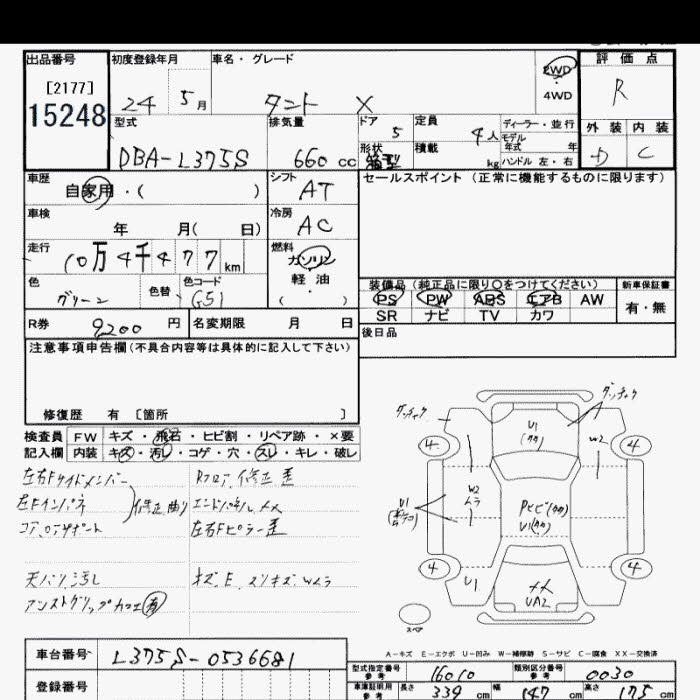 出品番号 初度登録年月 車名・グレード 2WD 評価点
[2177] 4WD R
15248 24 5月 タント X
型式 排気量 ドア 定員 ディーラー・並行 外装 内装
5 4人 モデル年式 年
DBA-L375S 660cc 形状 箱型 積載 kg ハンドル 左・右 D C
車歴 シフト セールスポイント (正常に機能するものに限ります)
自家用・( ) AT
車検 冷房
年 月( 日) AC
走行 燃料
10万4千477km ガソリン
軽油
色 色替 色コード ( )
グリーン (G51) 装備品 (純正品に限り○をつけてください) 新車保証書
PS PW ABS エアB AW 有・無
SR ナビ TV カワ
R券 9200円 名変期限 月 日 後日品
注意事項申告欄(不具合内容等は具体的に記入して下さい)
修復歴 有 [箇所 ]
検査員 FW キズ・飛石・ヒビ割・リペア跡・×要
記入欄 内装 キズ・汚レ・コゲ・穴・スレ・キレ・破レ
左右Fサイドメンバー Rフロア修正歪
左Fインパネ 修正曲り エンドパネルメメ
コア、ロアサポート 左右Fピラー歪
天バリ汚し キズ、E、スリキズ、Wムラ
アシストグリップカケ有
ダッチャク ダッチャク
U1
4 W2 4
W2
ムラ
U1
U1
4 4
U1 メメ
UA2
スペア
A-キズ E-エクボ U-凹み W-補修跡 S-サビ C-腐食 XX-交換済
車台番号 L375S-0536681
型式指定番号 参考 16010 類別区分番号 参考 0030
登録番号 車庫証明用 参考 長さ 339cm 幅 147cm 高さ 175cm